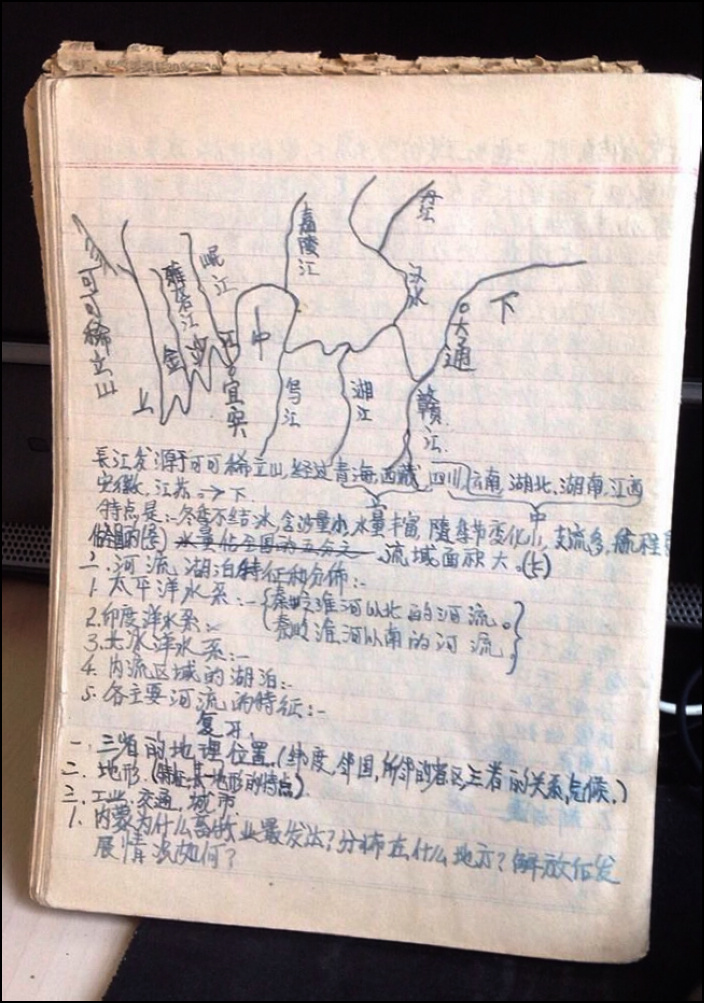 丹江
嘉陵江
岷江
汉水
下
雅砻江
可可稀立山
大通
中
金沙江
宜宾
上
乌江
湘江
赣江
長江发源于可可稀立山,经过青海,西藏,四川,云南,湖北,湖南,江西
安徽,江苏。→下
上 中
特点是:-冬季不结冰,含沙量小,水量丰富,随季节变化小,支流多,流程
水量佔全国的五分之 流域面积大。(长)
二.河流,湖泊特征和分佈:-
1.太平洋水系:-{秦岭淮河以北的河流。
2.印度洋水系:- 秦岭淮河以南的河流。}
3.北冰洋水系:-
4.内流区域的湖泊:-
5.各主要河流的特征:-
复习,
一.三省的地理位置,(纬度,邻国,所邻的省区,三省的关系,气候,)
二.地形,(特征,其地形的特点)
三.工业,交通,城市.
1.内蒙为什么畜牧业最发法?分布在什么地方?解放后发
展情况如何?